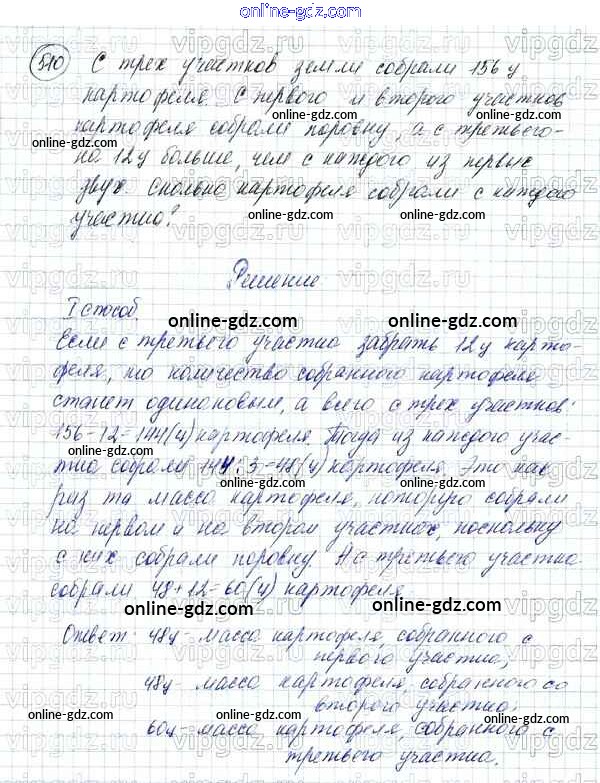 online-gdz.com
510 С трех участков земли собрали 156 ц
картофеля. С первого и второго участков
картофеля собрали поровну, а с третьего-
на 12 ц больше, чем с каждого из первых
двух. Сколько картофеля собрали с каждого
участка?
online-gdz.com
Решение
I способ.
online-gdz.com
Если с третьего участка забрать 12 ц карто-
феля, то количество собранного картофеля
станет одинаковым, а всего с трех участков:
156-12=144(ц) картофеля. Тогда из каждого учас-
тка собрали 144:3=48(ц) картофеля. Это как
раз та масса картофеля, которую собрали
на первом и на втором участках, поскольку
с них собрали поровну. А с третьего участка
собрали 48+12=60(ц) картофеля.
online-gdz.com
Ответ: 48ц - масса картофеля, собранного с
первого участка;
48ц - масса картофеля, собранного со
второго участка;
60ц - масса картофеля, собранного с
третьего участка.
online-gdz.com